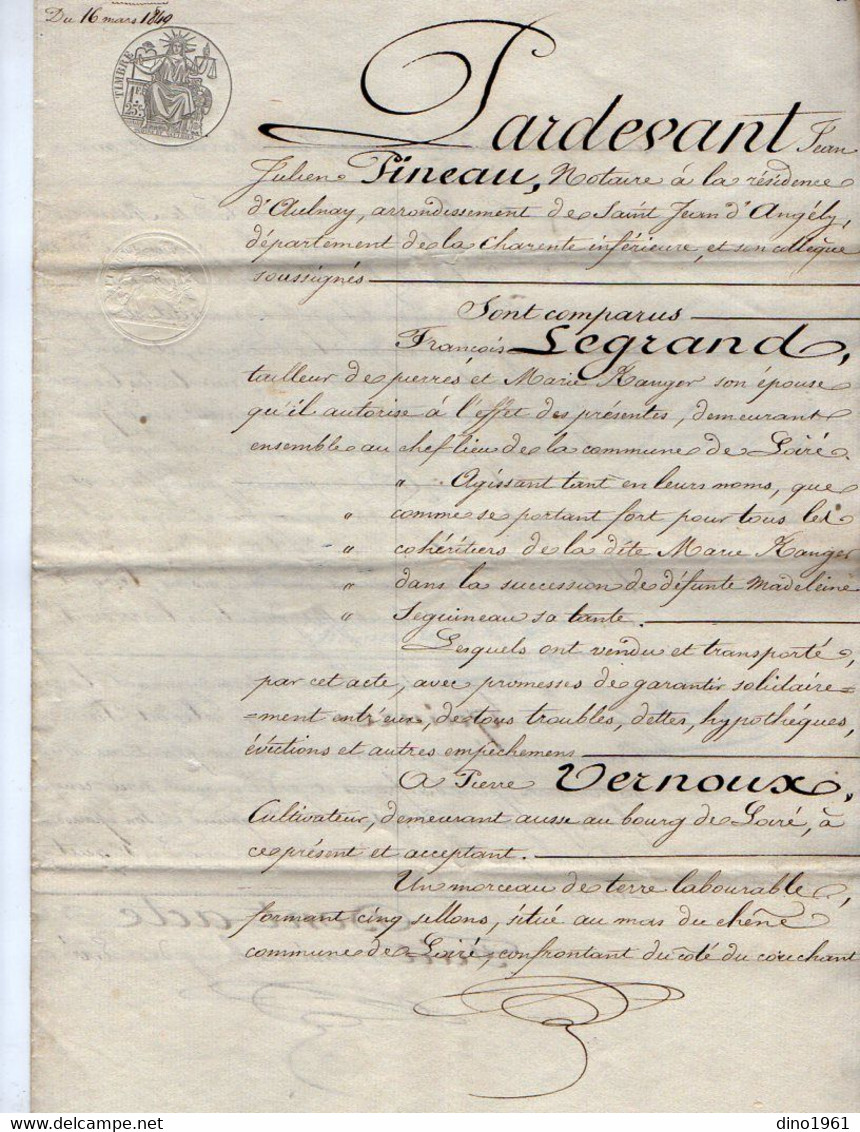 Du 16 mars 1849
TIMBRE
1 FR
25 C
Pardevant Jean
Julien Pineau, Notaire à la résidence
d'Aulnay, arrondissement de Saint Jean d'Angély,
département de la Charente inférieure, et son collègue
soussignés
Sont comparus
François Legrand,
tailleur de pierres et Marie Ranger son épouse
qu'il autorise à l'effet des présentes, demeurant
ensemble au chef lieu de la commune de Loiré.
" Agissant tant en leurs noms, que
" comme se portant fort pour tous les
" cohéritiers de la dite Marie Ranger
" dans la succession de défunte Madeleine
" Seguineau sa tante.
Lesquels ont vendu et transporté,
par cet acte, avec promesses de garantir solidaire=
=ment entr'eux, de tous troubles, dettes, hypothéques,
évictions et autres empêchemens
A Pierre Vernoux,
Cultivateur, demeurant aussi au bourg de Loiré, à
ce présent et acceptant.
Un morceau de terre labourable,
formant cinq sellons, situé au mas du chêne
commune de Loiré, confrontant du côté du couchant
dino1961